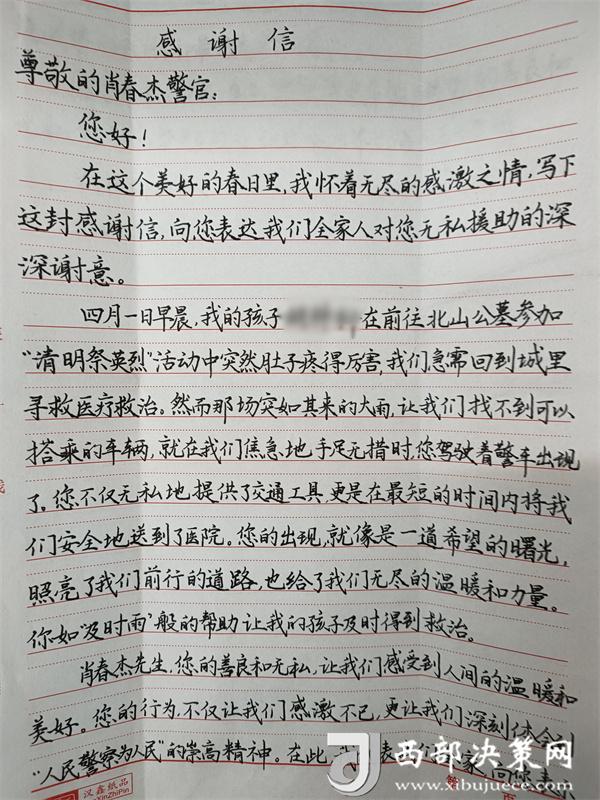 感谢信
尊敬的肖春杰警官：
您好！
在这个美好的春日里，我怀着无尽的感激之情，写下
这封感谢信，向您表达我们全家人对您无私援助的深
深谢意。
四月一日早晨，我的孩子在前往北山公墓参加
“清明祭英烈”活动中突然肚子疼得厉害，我们急需回到城里
寻救医疗救治。然而那场突如其来的大雨，让我们找不到可以
搭乘的车辆，就在我们焦急地手足无措时，您驾驶着警车出现
了。您不仅无私地提供了交通工具，更是在最短的时间内将我
们安全地送到了医院。您的出现，就像是一道希望的曙光，
照亮了我们前行的道路，也给了我们无尽的温暖和力量。
你如“及时雨”般的帮助让我的孩子及时得到救治。
肖春杰先生，您的善良和无私，让我们感受到人间的温暖和
美好。您的行为，不仅让我们感激不已，更让我们深刻体会到
“人民警察为人民”的崇高精神。在此，我代表我们全家，向您表示
汉鑫纸品
XinZhiPin
西部决策网
www.xibujuece.com